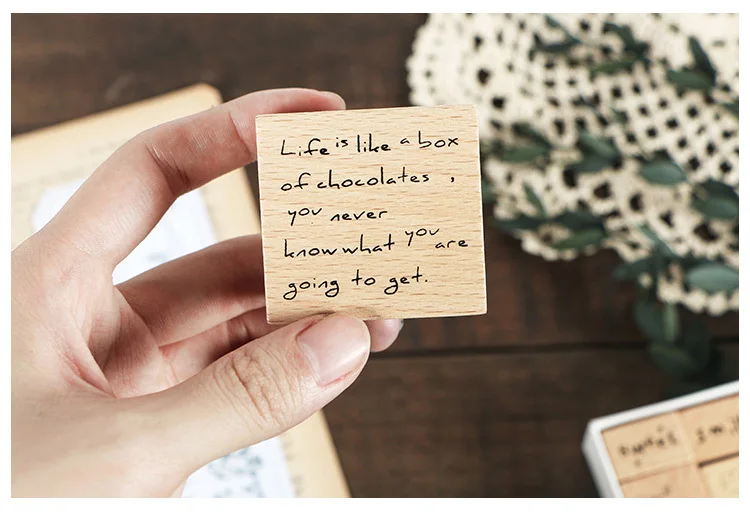 Life is like a box
of chocolates ,
you never
know what you are
going to get.